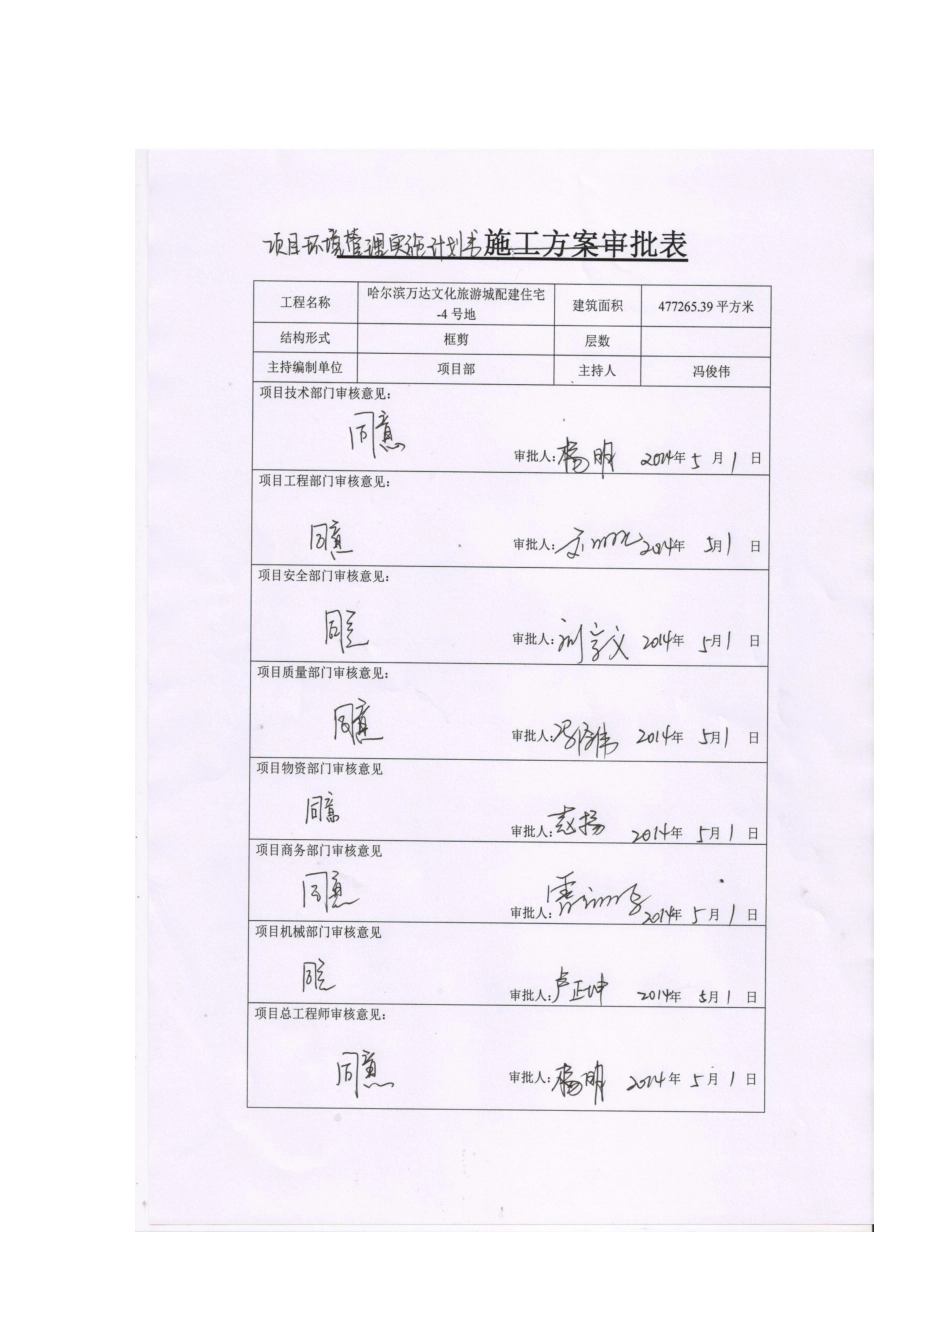 项目环境管理实施计划书施工方案审批表
工程名称 哈尔滨万达文化旅游城配建住宅-4 号地 建筑面积 477265.39 平方米
结构形式 框剪 层数
主持编制单位 项目部 主持人 冯俊伟
项目技术部门审核意见:
同意
审批人: 杨明 2014年 5 月 1 日
项目工程部门审核意见:
同意
审批人: 2014年 5月 1 日
项目安全部门审核意见:
同意
审批人: 刘彦文 2014年 5月 1 日
项目质量部门审核意见:
同意
审批人: 冯俊伟 2014年 5月 1 日
项目物资部门审核意见
同意
审批人: 赵扬 2014年 5月 1 日
项目商务部门审核意见
同意
审批人: 2014年 5月 1 日
项目机械部门审核意见
同意
审批人: 卢正坤 2014年 5月 1 日
项目总工程师审核意见:
同意
审批人: 杨明 2014年 5月 1 日